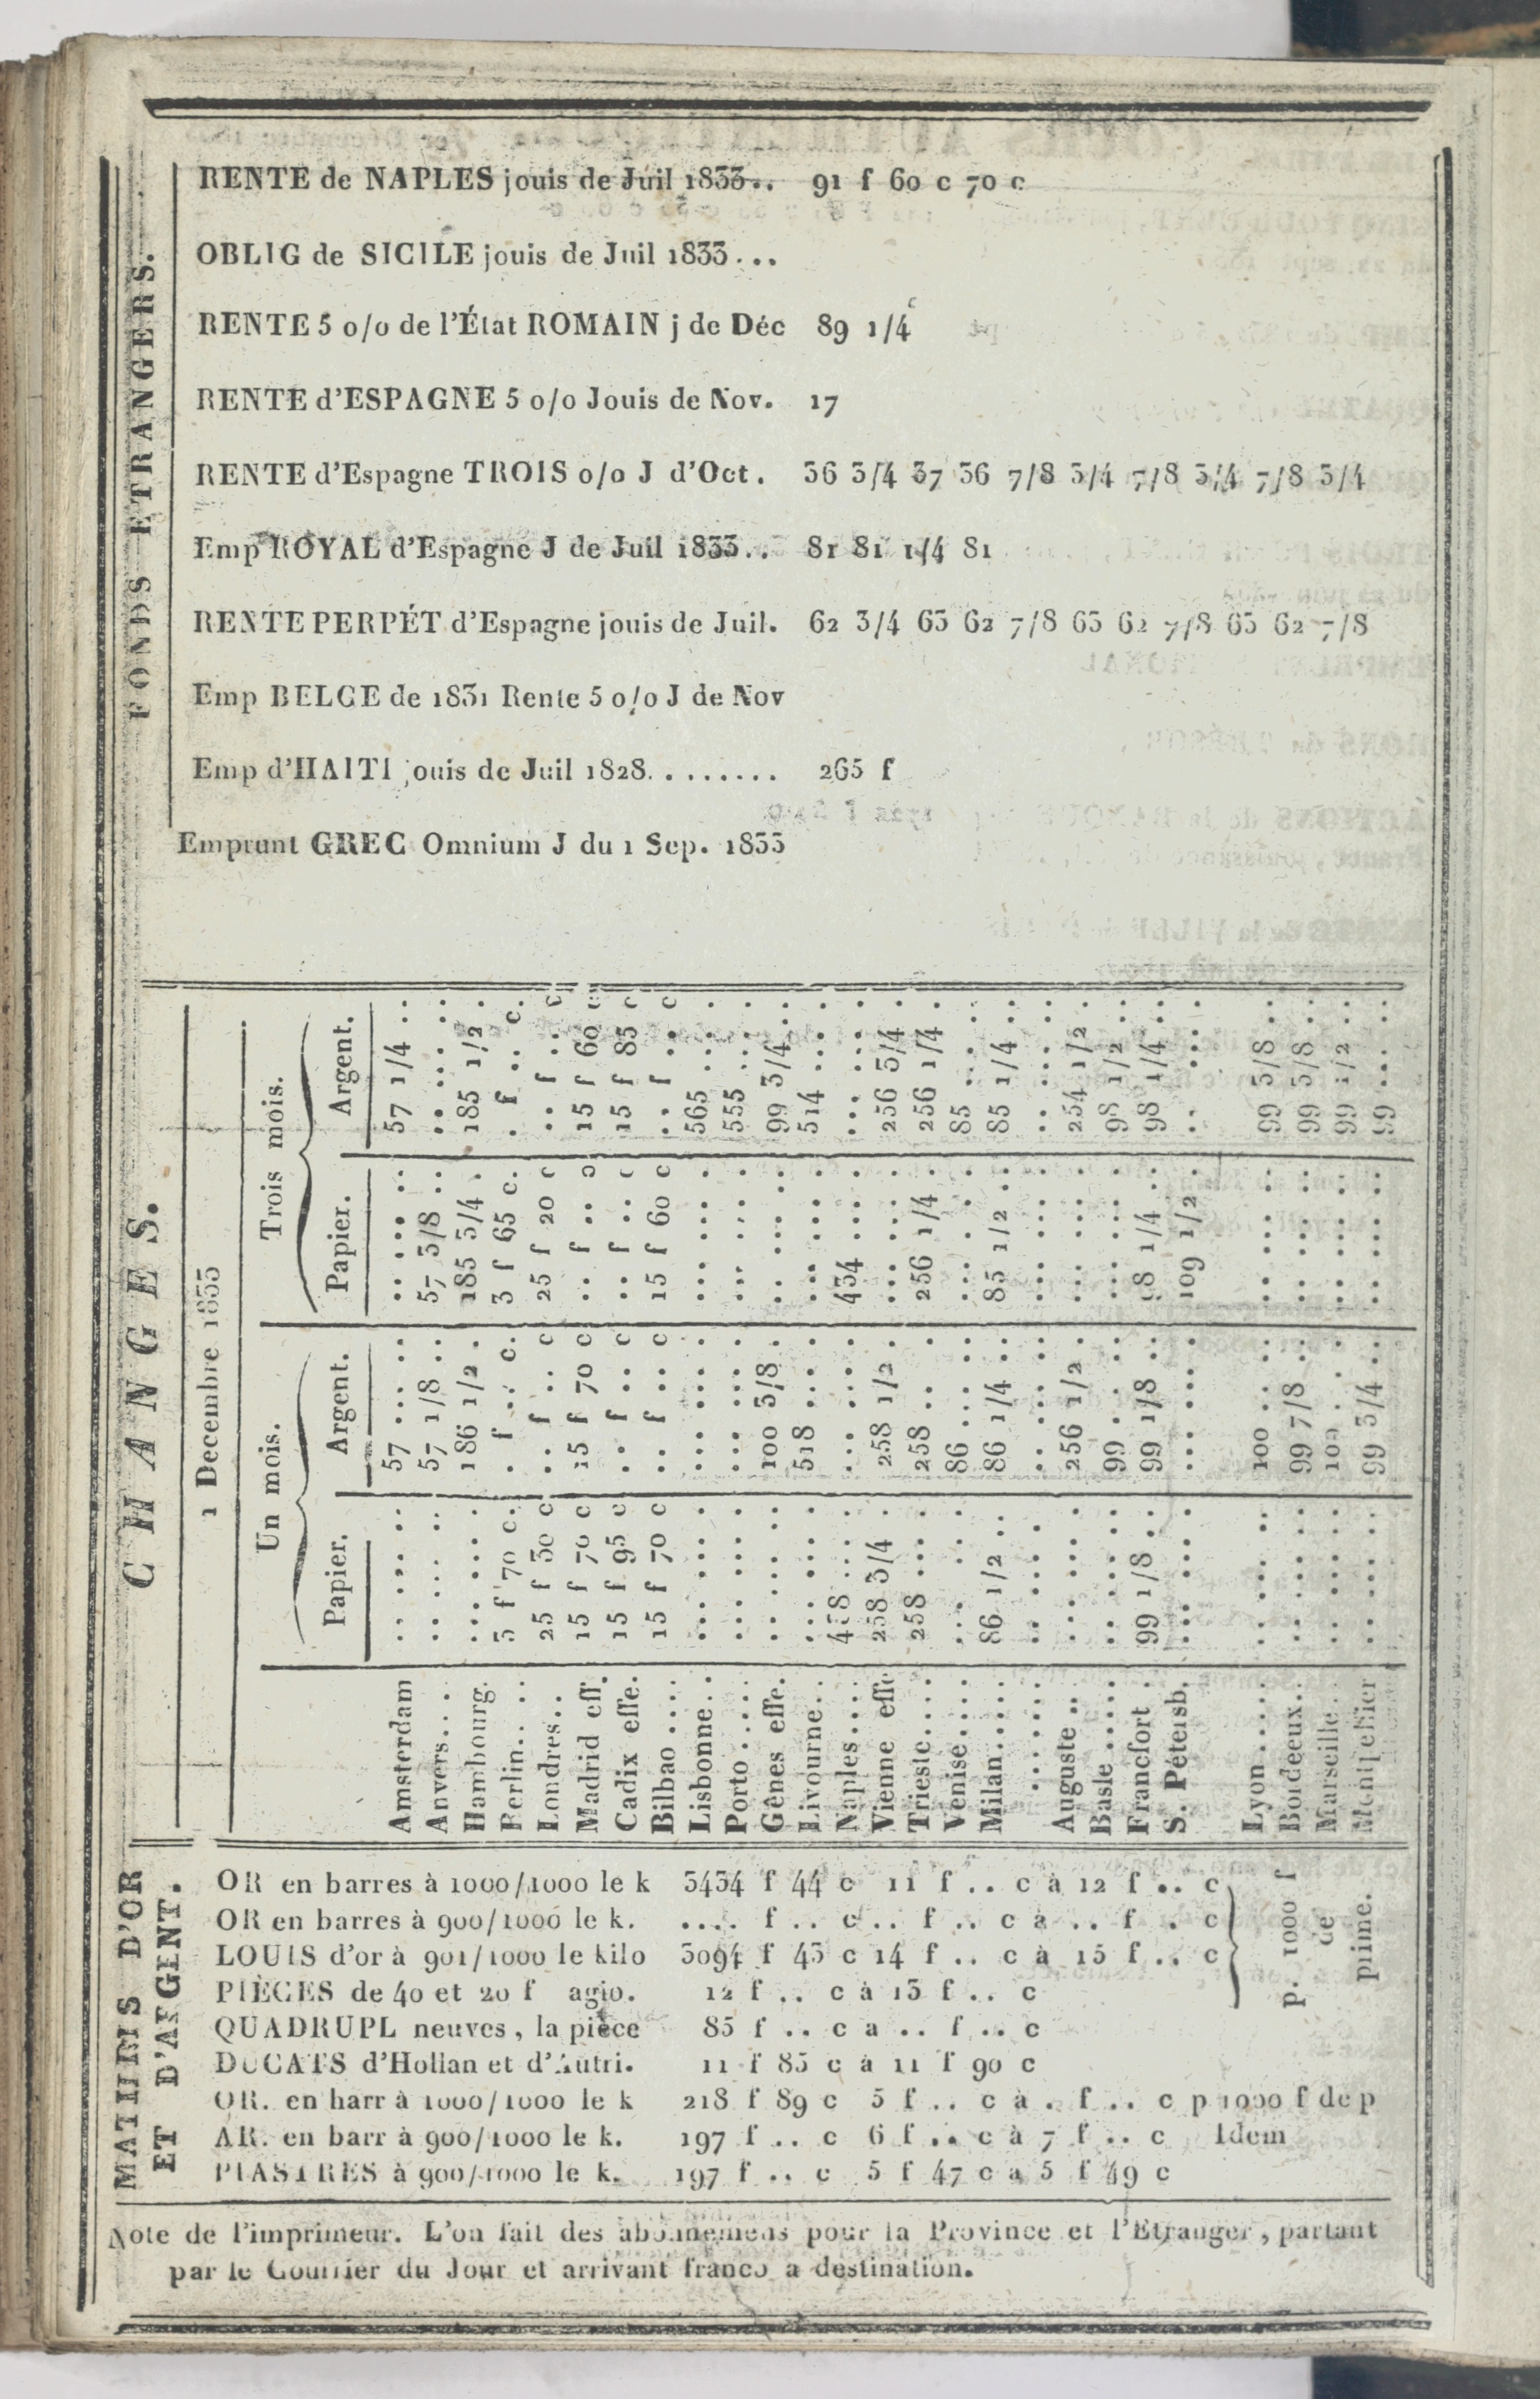 FONDS ETRANGERS.
RENTE de NAPLES jouis de Juil 1833.. 91 f 60 c 70 c
OBLIG de SICILE jouis de Juil 1833...
RENTE 5 0/0 de l'État ROMAIN j de Déc 89 1/4
RENTE d'ESPAGNE 5 0/0 Jouis de Nov. 17
RENTE d'Espagne TROIS 0/0 J d'Oct. 36 3/4 37 36 7/8 3/4 7/8 3/4 7/8 3/4
Emp ROYAL d'Espagne J de Juil 1833.. 81 81 1/4 81
RENTE PERPÉT d'Espagne jouis de Juil. 62 3/4 63 62 7/8 63 62 7/8 63 62 7/8
Emp BELGE de 1831 Rente 5 0/0 J de Nov
Emp d'HAITI jouis de Juil 1828........ 265 f
Emprunt GREC Omnium J du 1 Sep. 1833
CHANGES.
1 Decembre 1833
Un mois. Trois mois.
Papier. Argent. Papier. Argent.
Amsterdam .. ... .. 57 ... .. .. ... .. 57 1/4 ..
Anvers... .. ... .. 57 1/8 .. 57 3/8 .. .. ... ..
Hambourg. ... ... . 186 1/2 . 185 3/4 . 185 1/2 .
Berlin.... 3 f 70 c. . f .. c. 3 f 65 c. . f .. c.
Londres... 25 f 30 c .. f .. c 25 f 20 c .. f .. c
Madrid eff. 15 f 70 c 15 f 70 c .. f .. c 15 f 60 c
Cadix effe. 15 f 95 c .. f .. c .. f .. c 15 f 85 c
Bilbao .... 15 f 70 c .. f .. c 15 f 60 c .. f .. c
Lisbonne... ... ... . ... ... . ... ... . 565 ... .
Porto ..... ... ... . ... ... . ... ... . 555 ... .
Gênes effe. .. ... .. 100 3/8 . .. ... .. 99 3/4 ..
Livourne... ... ... . 518 ... . ... ... . 514 ... .
Naples.... ... . ... ... . 434 ... . ... ... .
Vienne effe 258 3/4 . 258 1/2 . ... ... . 256 3/4 .
Trieste.... 258 ... . 258 .. . 256 1/4 . 256 1/4 .
Venise.... ... .. . 86 ... .. ... .. . 85 ... ..
Milan...... 86 1/2 .. 86 1/4 .. 85 1/2 .. 85 1/4 ..
....... .. ... .. .. ... .. .. ... .. .. ... ..
Auguste .. ... ... . 256 1/2 . ... ... . 254 1/2 .
Basle ..... .. ... .. 99 . .. .. ... .. 98 1/2 ..
Francfort . 99 1/8 .. 99 1/8 .. 98 1/4 .. 98 1/4 ..
S. Pétersb. ... ... . ... ... . 109 1/2 . .. ... .
Lyon ..... .. ... .. 100 .. .. .. ... .. 99 3/8 ..
Bordeeux... .. ... .. 99 7/8 .. .. ... .. 99 3/8 ..
Marseille .. ... .. 100 . .. .. ... .. 99 1/2 ..
Montpellier .. ... .. 99 3/4 .. .. ... .. 99 ... ..
MATIERES D'OR
ET D'ARGENT.
OR en barres à 1000/1000 le k 3434 f 44 c 11 f .. c à 12 f .. c
OR en barres à 900/1000 le k. .... f .. c .. f .. c à .. f . c
LOUIS d'or à 901/1000 le kilo 3094 f 43 c 14 f .. c à 15 f .. c
PIÈCES de 40 et 20 f agio. 12 f .. c à 13 f .. c
p. 1000 f
de
prime.
QUADRUPL neuves, la pièce 85 f .. c a .. f .. c
DUCATS d'Hollan et d'Autri. 11 f 85 c à 11 f 90 c
OR. en barr à 1000/1000 le k 218 f 89 c 5 f .. c à . f .. c p 1000 f de p
AR. en barr à 900/1000 le k. 197 f .. c 6 f .. c à 7 f .. c Idem
PIASTRES à 900/1000 le k. 197 f .. c 5 f 47 c a 5 f 49 c
Note de l'imprimeur. L'on fait des abonnemens pour la Province et l'Etranger, partant
par le Courrier du Jour et arrivant franco a destination.